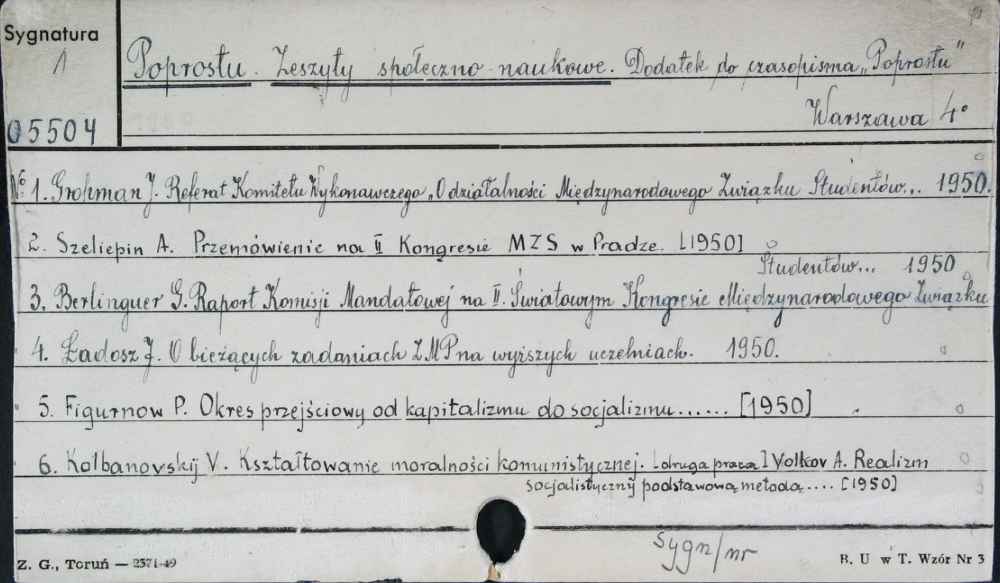 Sygnatura
Λ
05504
Poprostu. Zeszyty społeczno-naukowe. Dodatek do czasopisma „Poprostu"
Warszawa 4°
№ 1. Grohman J. Referat Komitetu Wykonawczego „O działalności Międzynarodowego Związku Studentów... 1950.
2. Szeliepin A. Przemówienie na II Kongresie MZS w Pradze. [1950]
Studentów... 1950
3. Berlinguer G. Raport Komisji Mandatowej na II. Światowym Kongresie Międzynarodowego Związku
4. Ładosz J. O bieżących zadaniach ZMP na wyższych uczelniach. 1950.
5. Figurnow P. Okres przejściowy od kapitalizmu do socjalizmu...... [1950]
6. Kolbanovskij V. Kształtowanie moralności komunistycznej. [druga praca] Volkov A. Realizm
socjalistyczny podstawową metodą.... [1950]
sygn/nr
Z. G., Toruń — 2571-49
B. U w T. Wzór Nr 3